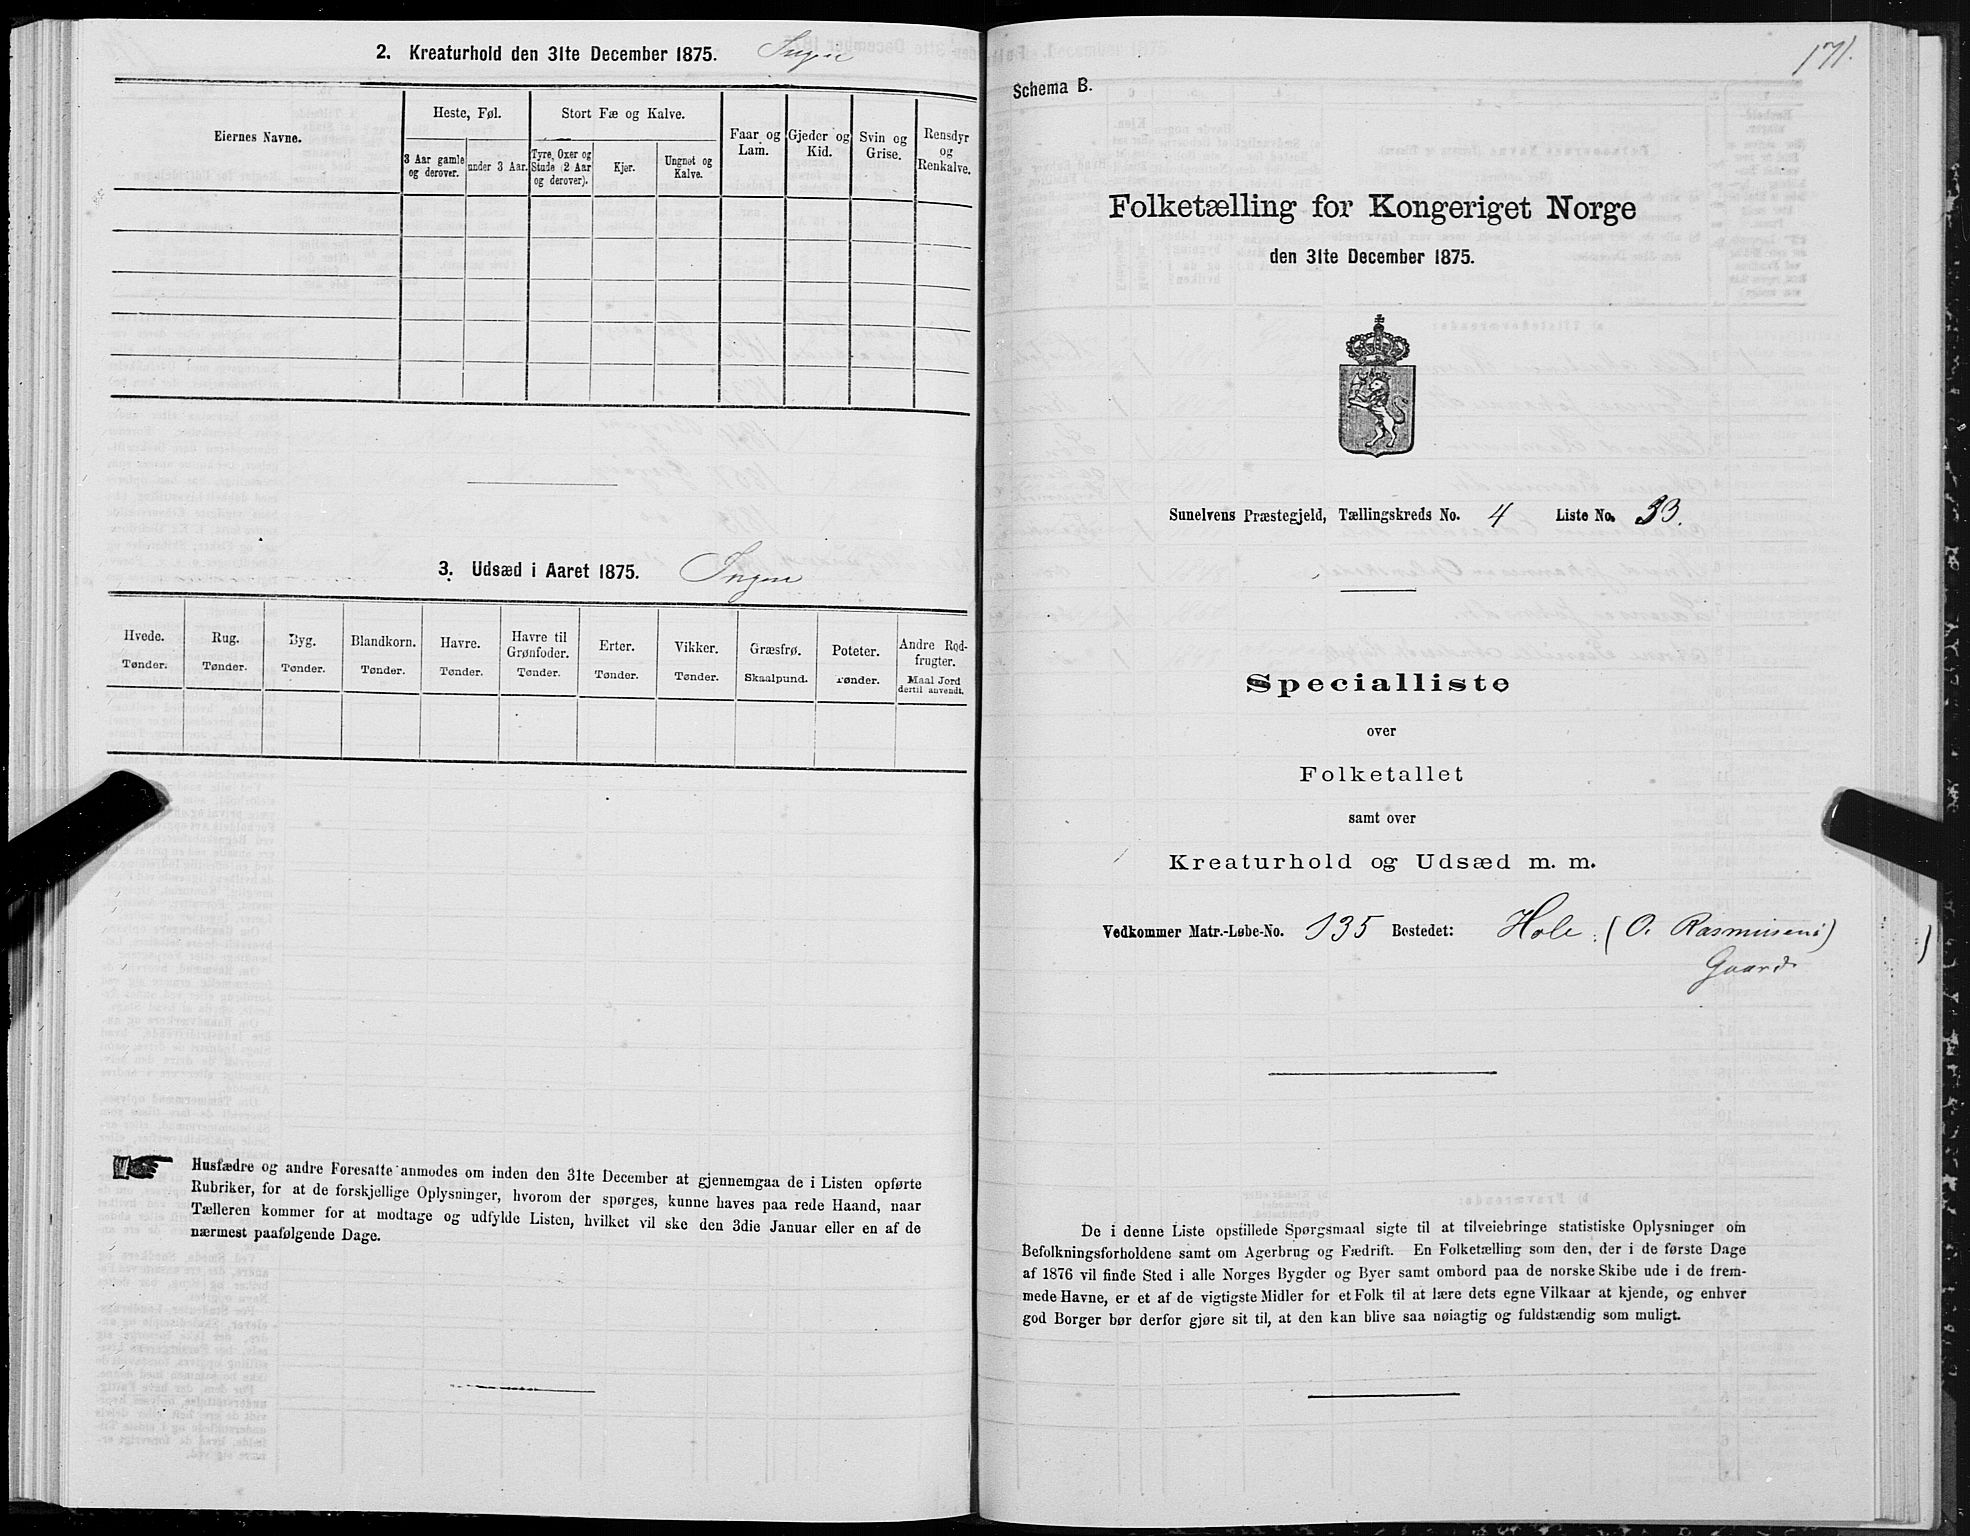 2. Kreaturhold den 31te December 1875. Ingen
Eiernes Navne.
Heste, Føl.
Stort Fæ og Kalve.
Faar og Lam.
Gjeder og Kid.
Svin og Grise.
Rensdyr og Renkalve.
3 Aar gamle og derover.
under 3 Aar.
Tyre, Oxer og Stude (2 Aar og derover).
Kjør.
Ungnøt og Kalve.
3. Udsæd i Aaret 1875. Ingen
Hvede. Rug. Byg. Blandkorn. Havre. Havre til Grønfoder. Erter. Vikker. Græsfrø. Poteter. Andre Rodfrugter.
Tønder. Tønder. Tønder. Tønder. Tønder. Tønder. Tønder. Tønder. Skaalpund. Tønder. Maal Jord dertil anvendt.
Husfædre og andre Foresatte anmodes om inden den 31te December at gjennemgaa de i Listen opførte
Rubriker, for at de forskjellige Oplysninger, hvorom der spørges, kunne haves paa rede Haand, naar
Tælleren kommer for at modtage og udfylde Listen, hvilket vil ske den 3die Januar eller en af de
nærmest paafølgende Dage.
171.
Schema B.
Folketælling for Kongeriget Norge
den 31te December 1875.
Sunelvens Præstegjeld, Tællingskreds No. 4 Liste No. 33.
Specialliste
over
Folketallet
samt over
Kreaturhold og Udsæd m. m.
Vedkommer Matr.-Løbe-No. 135 Bostedet: Hole (O. Rasmusens)
Gaard
De i denne Liste opstillede Spørgsmaal sigte til at tilveiebringe statistiske Oplysninger om
Befolkningsforholdene samt om Agerbrug og Fædrift. En Folketælling som den, der i de første Dage
af 1876 vil finde Sted i alle Norges Bygder og Byer samt ombord paa de norske Skibe ude i de frem-
mede Havne, er et af de vigtigste Midler for et Folk til at lære dets egne Vilkaar at kjende, og enhver
god Borger bør derfor gjøre sit til, at den kan blive saa nøiagtig og fuldstændig som muligt.